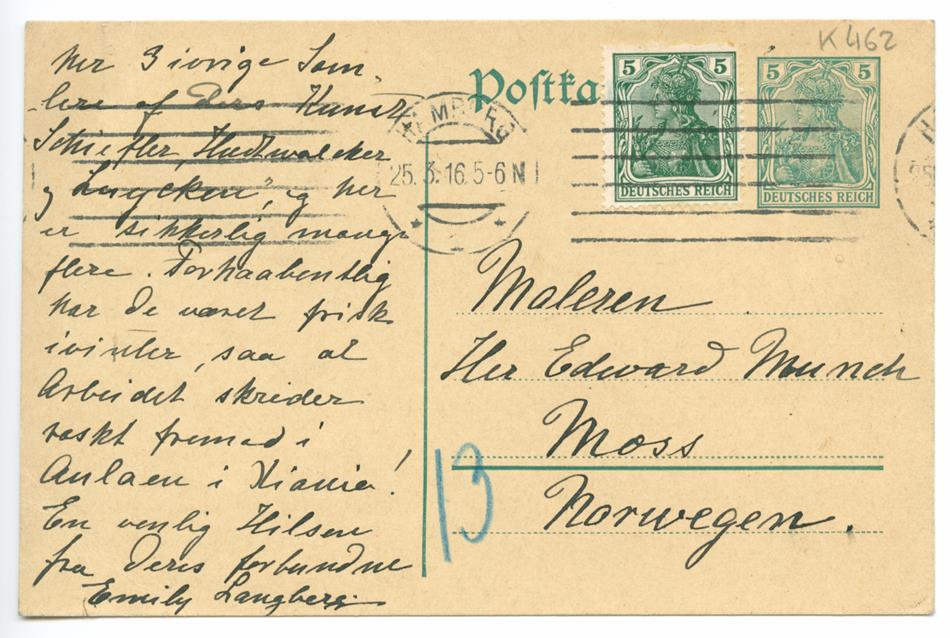 K 462
Postka
5 5
DEUTSCHES REICH
5 5
DEUTSCHES REICH
HAMBURG
25.3.16.5-6 N
her 3 ivrige Sam-
lere af Deres Kunst,
Schiefler, Hudtwalcker
og , og her
er sikkerlig mange
flere. Forhaabentlig
har De været frisk
ivinter, saa at
Arbeidet skrider
raskt fremad i
Aulaen i Kiania!
En venlig Hilsen
fra Deres forbundne
Emily Langberg.
Maleren
Her Edward Munch
Moss
Norwegen.
13